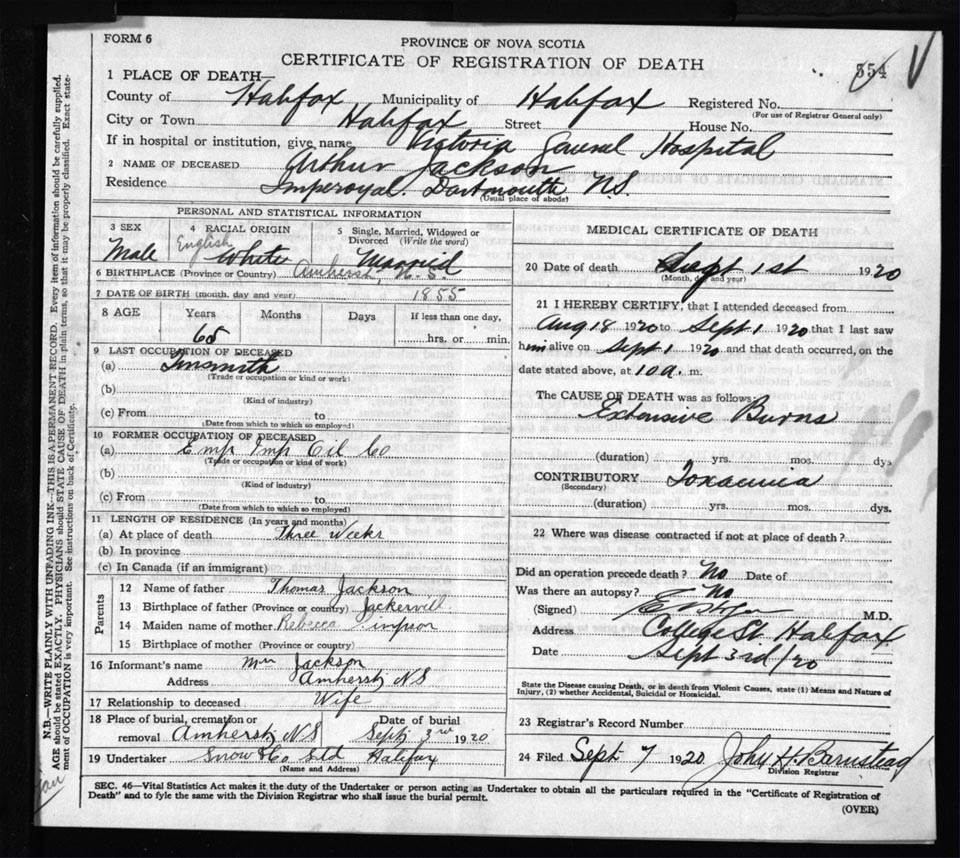 FORM 6
PROVINCE OF NOVA SCOTIA
CERTIFICATE OF REGISTRATION OF DEATH
554
1 PLACE OF DEATH—
County of Halifax Municipality of Halifax Registered No.
(For use of Registrar General only)
City or Town Halifax Street House No.
If in hospital or institution, give name Victoria General Hospital
2 NAME OF DECEASED Arthur Jackson
Residence Imperoyal. Dartmouth N.S.
(Usual place of abode)
PERSONAL AND STATISTICAL INFORMATION
3 SEX 4 RACIAL ORIGIN 5 Single, Married, Widowed or Divorced (Write the word)
Male English White Married
6 BIRTHPLACE (Province or Country) Amherst, N.S.
7 DATE OF BIRTH (month, day and year) 1855
8 AGE Years Months Days If less than one day,
65 hrs. or min.
9 LAST OCCUPATION OF DECEASED
(a) Tinsmith
(Trade or occupation or kind or work)
(b)
(Kind of industry)
(c) From to
(Date from which to which so employed)
10 FORMER OCCUPATION OF DECEASED
(a) Emp Imp Oil Co
(Trade or occupation or kind of work)
(b)
(Kind of industry)
(c) From to
(Date from which to which so employed)
11 LENGTH OF RESIDENCE (In years and months)
(a) At place of death Three Weeks
(b) In province
(c) In Canada (if an immigrant)
Parents
12 Name of father Thomas Jackson
13 Birthplace of father (Province or country)
14 Maiden name of mother Rebecca
15 Birthplace of mother (Province or country)
16 Informant's name Mrs Jackson
Address Amherst, NS
17 Relationship to deceased Wife
18 Place of burial, cremation or removal Amherst, NS Date of burial Sept 3rd 1920
19 Undertaker Snow & Co Ltd Halifax
(Name and Address)
MEDICAL CERTIFICATE OF DEATH
20 Date of death Sept 1st 1920
(Month, day and year)
21 I HEREBY CERTIFY, that I attended deceased from
Aug 18 1920 to Sept 1 1920 that I last saw
him alive on Sept 1 1920 and that death occurred, on the
date stated above, at 10 a. m.
The CAUSE OF DEATH was as follows:
Extensive Burns
(duration) yrs. mos. dys
CONTRIBUTORY Toxaemia
(Secondary)
(duration) yrs. mos. dys.
22 Where was disease contracted if not at place of death?
Did an operation precede death? No Date of
Was there an autopsy? No
(Signed) M.D.
Address College St Halifax
Date Sept 3rd/20
State the Disease causing Death, or in death from Violent Causes, state (1) Means and Nature of
Injury, (2) whether Accidental, Suicidal or Homicidal.
23 Registrar's Record Number
24 Filed Sept 7 1920 John H. Barnstead
Division Registrar
SEC. 46—Vital Statistics Act makes it the duty of the Undertaker or person acting as Undertaker to obtain all the particulars required in the "Certificate of Registration of
Death" and to fyle the same with the Division Registrar who shall issue the burial permit.
(OVER)
N.B.—WRITE PLAINLY WITH UNFADING INK—THIS IS A PERMANENT RECORD. Every item of information should be carefully supplied.
AGE should be stated EXACTLY. PHYSICIANS should STATE CAUSE OF DEATH in plain terms, so that it may be properly classified. Exact state-
ment of OCCUPATION is very important. See instructions on back of Certificate.